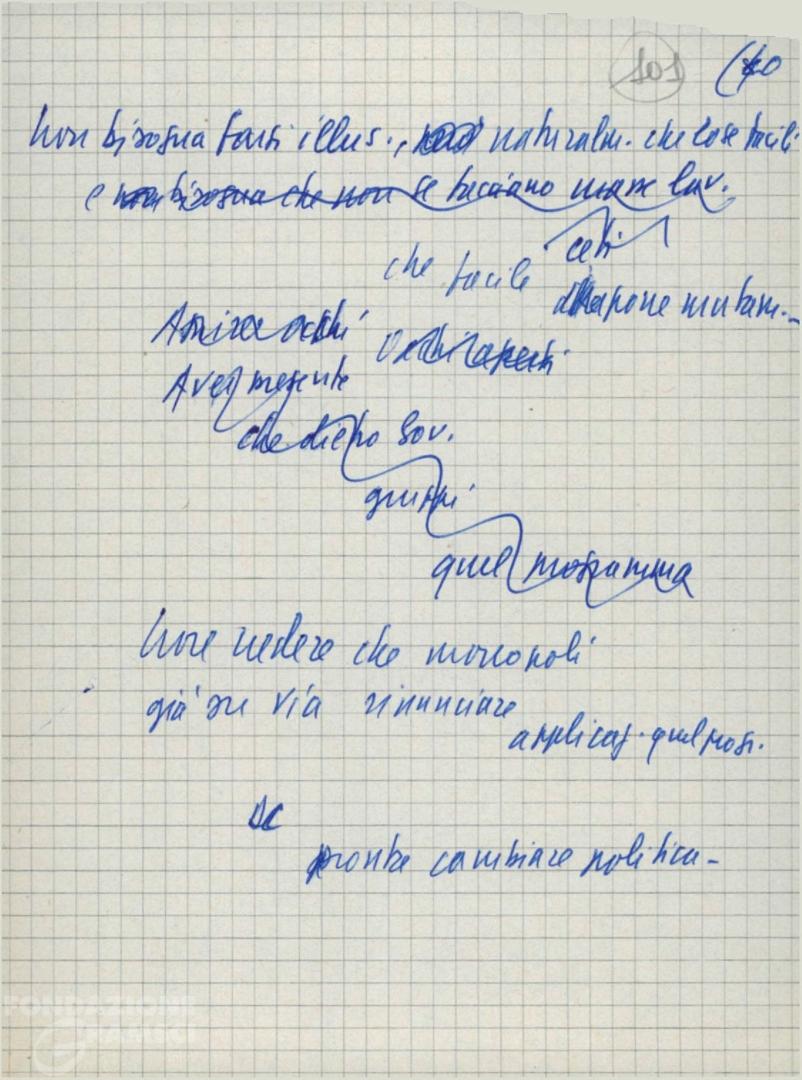 101 (40
Non bisogna farsi illus., naturalm. che cose facili
e non bisogna che non se facciano masse lav.
che facile ceti
mutam.-
A occhi Occhi aperti
Aver presente
che dietro Gov.
gruppi
quel programma
Non vedere che monopoli
già su via rinunciare
applicaz. quel prog.
DC
pronta cambiare politica-